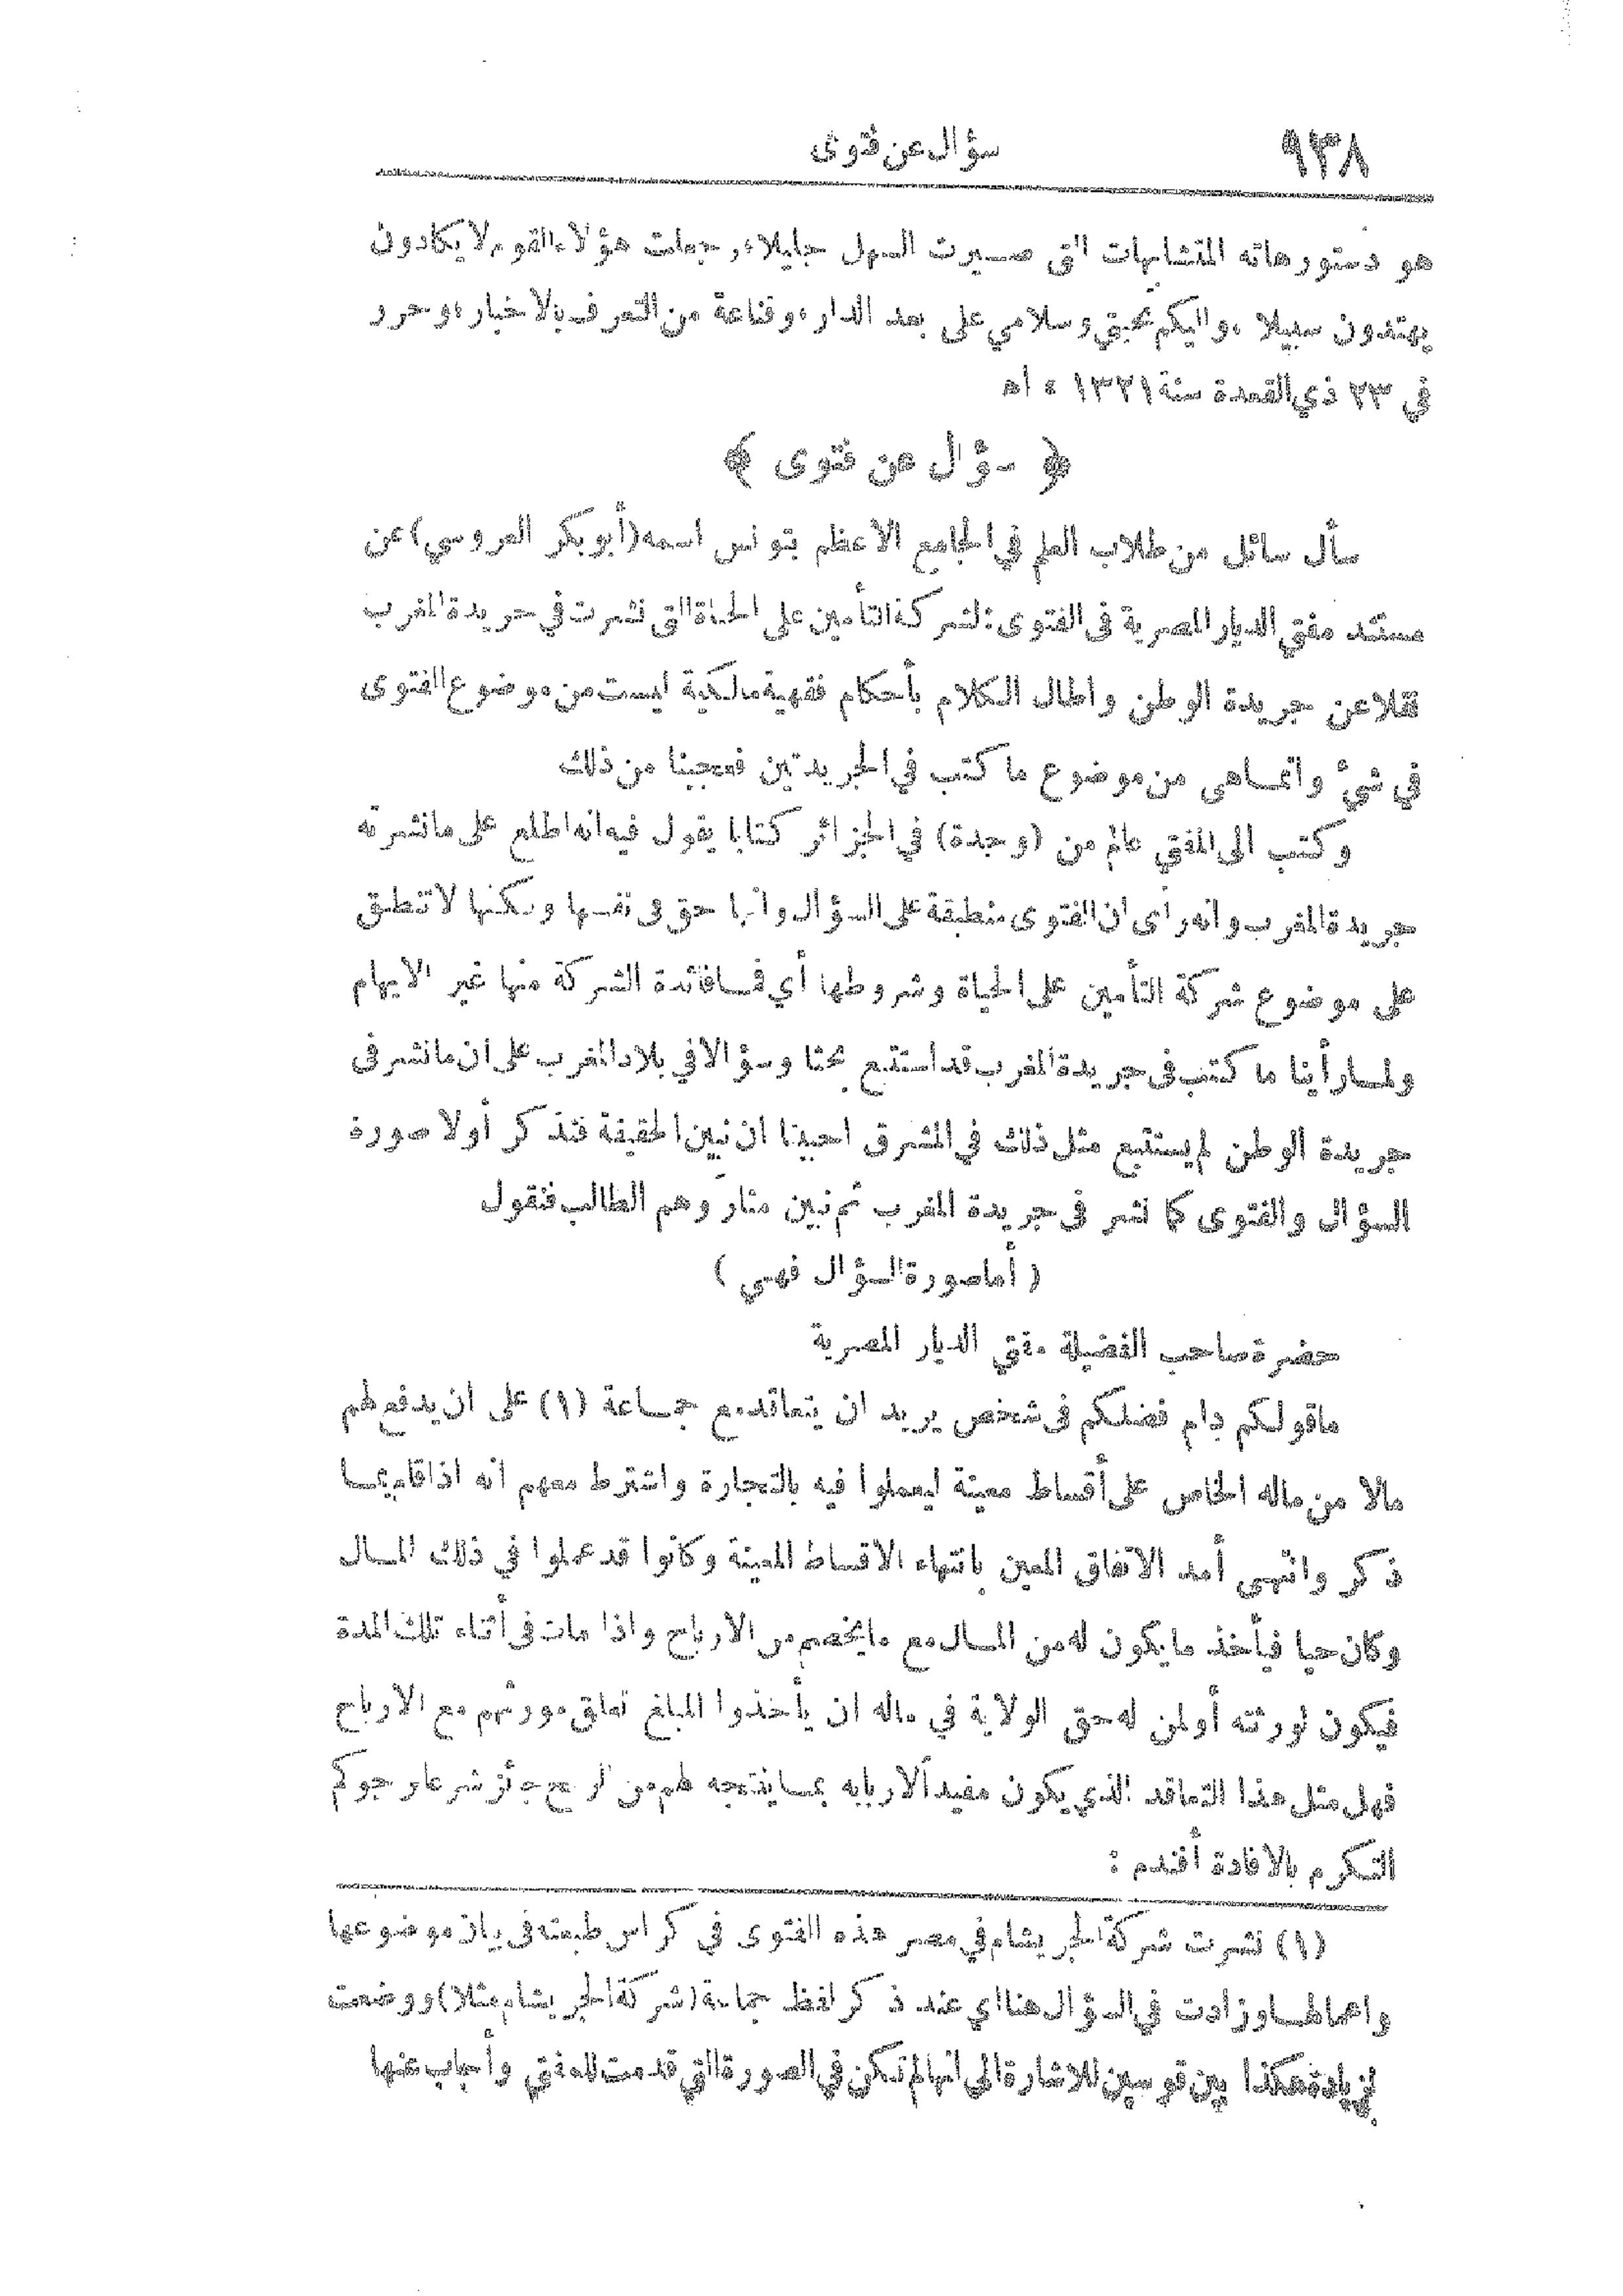 ٩٣٨
سؤال عن فتوى
هو دستور هاته المتشابهات التى صيرت السهل جليلا، وجعلت هؤلاء القوم لا يكادون
يهتدون سبيلا، واليكم تحيتي وسلامي على بعد الدار، وقناعة من التعرف بالاخبار، وحرر
في ٢٣ ذي القعدة سنة ١٣٢١ ، اه
﴿ سؤال عن فتوى ﴾
سأل سائل من طلاب العلم في الجامع الاعظم بتونس اسمه (أبو بكر العروسي) عن
مستند مفتي الديار المصرية فى الفتوى: لشركة التأمين على الحياة التى نشرت في جريدة المغرب
نقلا عن جريدة الوطن واطال الكلام بأحكام فقهية مالكية ليست من موضوع الفتوى
في شيء وانما هى من موضوع ما كتب في الجريدتين فعجبنا من ذلك
وكتب الى المفتي عالم من (وجدة) في الجزائر كتابا يقول فيه انه اطلع على ما نشرته
جريدة المغرب وانه رأى ان الفتوى منطبقة على السؤال وانها حق فى نفسها ولكنها لا تنطبق
على موضوع شركة التأمين على الحياة وشروطها أي فما فائدة الشركة منها غير الايهام
ولما رأينا ما كتب فى جريدة المغرب قد استتبع بحثا وسؤالا في بلاد المغرب على ان ما نشر فى
جريدة الوطن لم يستتبع مثل ذلك في المشرق احببنا ان نبين الحقيقة فنذكر أولا صورة
السؤال والفتوى كما نشر فى جريدة المغرب ثم نبين مثار وهم الطالب فنقول
( أما صورة السؤال فهي )
حضرة صاحب الفضيلة مفتي الديار المصرية
ما قولكم دام فضلكم فى شخص يريد ان يتعاقد مع جماعة (١) على ان يدفع لهم
مالا من ماله الخاص على أقساط معينة ليعملوا فيه بالتجارة واشترط معهم انه اذا قام بما
ذكر وانتهى أمد الاتفاق المعين بانتهاء الاقساط المعينة وكانوا قد عملوا في ذلك المال
وكان حيا فيأخذ ما يكون له من المال مع ما يخصه من الارباح واذا مات فى أثناء تلك المدة
فيكون لورثته أو لمن له حق الولاية في ماله ان يأخذوا المبلغ تعلق مورثهم مع الارباح
فهل مثل هذا التعاقد الذي يكون مفيداً لاربابه بما ينتجه لهم من الربح جائز شرعا نرجوكم
التكرم بالافادة أفندم :
(١) نشرت شركة الجريشام في مصر هذه الفتوى في كراس طبعته فى بيان موضوعها
واعمالها وزادت في السؤال هنا اي عند ذكر لفظ جماعة (شركة الجريشام مثلا) ووضعت
الزيادة هكذا بين قوسين للاشارة الى انها لم تكن في الصورة التي قدمت للمفتي وأجاب عنها